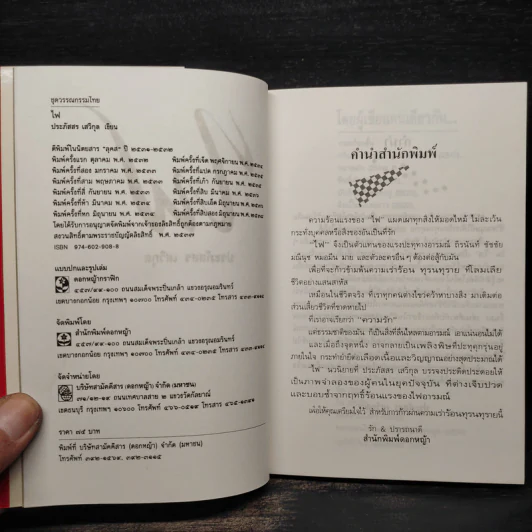 ชุดวรรณกรรมไทย
ไฟ
ประภัสสร เสวิกุล เขียน
ตีพิมพ์ในนิตยสาร "ลุคส์" ปี ๒๕๓๑-๒๕๓๒
พิมพ์ครั้งแรก ตุลาคม พ.ศ. ๒๕๓๒
พิมพ์ครั้งที่เจ็ด พฤศจิกายน พ.ศ.
พิมพ์ครั้งที่สอง มกราคม พ.ศ. ๒๕๓๓
พิมพ์ครั้งที่แปด กรกฎาคม พ.ศ.
พิมพ์ครั้งที่สาม พฤษภาคม พ.ศ. ๒๕๓๓
พิมพ์ครั้งที่เก้า กันยายน พ.ศ.
พิมพ์ครั้งที่สี่ กันยายน พ.ศ.
พิมพ์ครั้งที่สิบ มีนาคม พ.ศ.
พิมพ์ครั้งที่ห้า มีนาคม พ.ศ.
พิมพ์ครั้งที่สิบเอ็ด มิถุนายน พ.ศ.
พิมพ์ครั้งที่หก มิถุนายน พ.ศ.
พิมพ์ครั้งที่สิบสอง มิถุนายน พ.ศ.
โดยได้รับการอนุญาตจัดพิมพ์จากเจ้าของลิขสิทธิ์ถูกต้องตามกฎหมาย
สงวนลิขสิทธิ์ตามพระราชบัญญัติลิขสิทธิ์ พ.ศ. ๒๕๓๗
ISBN 974-602-908-8
แบบปกและรูปเล่ม
ดอกหญ้ากราฟิก
ถนนสมเด็จพระปิ่นเกล้า แขวงอรุณอมรินทร์
เขตบางกอกน้อย กรุงเทพฯ ๑๐๗๐๐ โทรศัพท์
จัดพิมพ์โดย
สำนักพิมพ์ดอกหญ้า
ถนนสมเด็จพระปิ่นเกล้า แขวงอรุณอมรินทร์
เขตบางกอกน้อย กรุงเทพฯ ๑๐๗๐๐ โทรศัพท์
จัดจำหน่ายโดย
บริษัทสามัคคีสาร (ดอกหญ้า) จำกัด (มหาชน)
ถนนเทศบาลสาย ๒ แขวงวัดกัลยาณ์
เขตธนบุรี กรุงเทพฯ ๑๐๖๐๐ โทรศัพท์
ราคา ๗๕ บาท
พิมพ์ที่ บริษัทสามัคคีสาร (ดอกหญ้า) จำกัด (มหาชน)
โทรศัพท์
คำนำสำนักพิมพ์
ความร้อนแรงของ "ไฟ" แผดเผาทุกสิ่งให้มอดไหม้ ไม่ละเว้น
กระทั่งบุคคลหรือสิ่งของอันเป็นที่รัก
"ไฟ" จึงเป็นตัวแทนของแรงปะทุทางอารมณ์ ถิรนันท์ ชัชชัย
มณีนุช หมอมีน มาย และตัวละครอื่น ๆ ต้องต่อสู้กับมัน
เพื่อที่จะก้าวข้ามพ้นความเร่าร้อน ทุรนทุราย ที่โลมเลีย
ชีวิตอย่างแสนสาหัส
เหมือนในชีวิตจริง ที่เราทุกคนต่างโชคร้ายบางสิ่ง มาเติมต่อ
ส่วนเสี้ยวชีวิตที่ขาดหายไป
ที่เราอาจเรียกว่า "ความรัก"
แต่ธรรมชาติของมัน ก็เป็นสิ่งที่ลื่นไหลตามอารมณ์ เอาแน่นอนไม่ได้
และเมื่อถึงจุดหนึ่ง อาจกลายเป็นเพลิงพิษที่ปะทุคุกรุ่นอยู่
ภายในใจ กระทำย่ำยีต่อเลือดเนื้อและวิญญาณอย่างสุดประมาณได้
"ไฟ" นวนิยายที่ ประภัสสร เสวิกุล บรรจงประดิดประดอยให้
เป็นภาพจำลองของผู้คนในยุคปัจจุบัน ที่ต่างเจ็บปวด
และบอบช้ำจากฤทธิ์ร้อนแรงของไฟอารมณ์
เพื่อให้คุณเตรียมใจไว้ สำหรับการก้าวผ่านความเร่าร้อนทุรนทุรายนี้
รัก & ปรารถนาดี
สำนักพิมพ์ดอกหญ้า